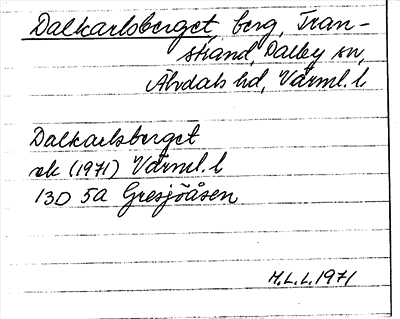 Dalkarlsberget, berg, Tran-
strand, Dalby sn,
Älvdals hd, Värml. l.
Dalkarlsberget
ek (1971) Värml. l
13D 5a Gresjöåsen
M.L.L. 1971